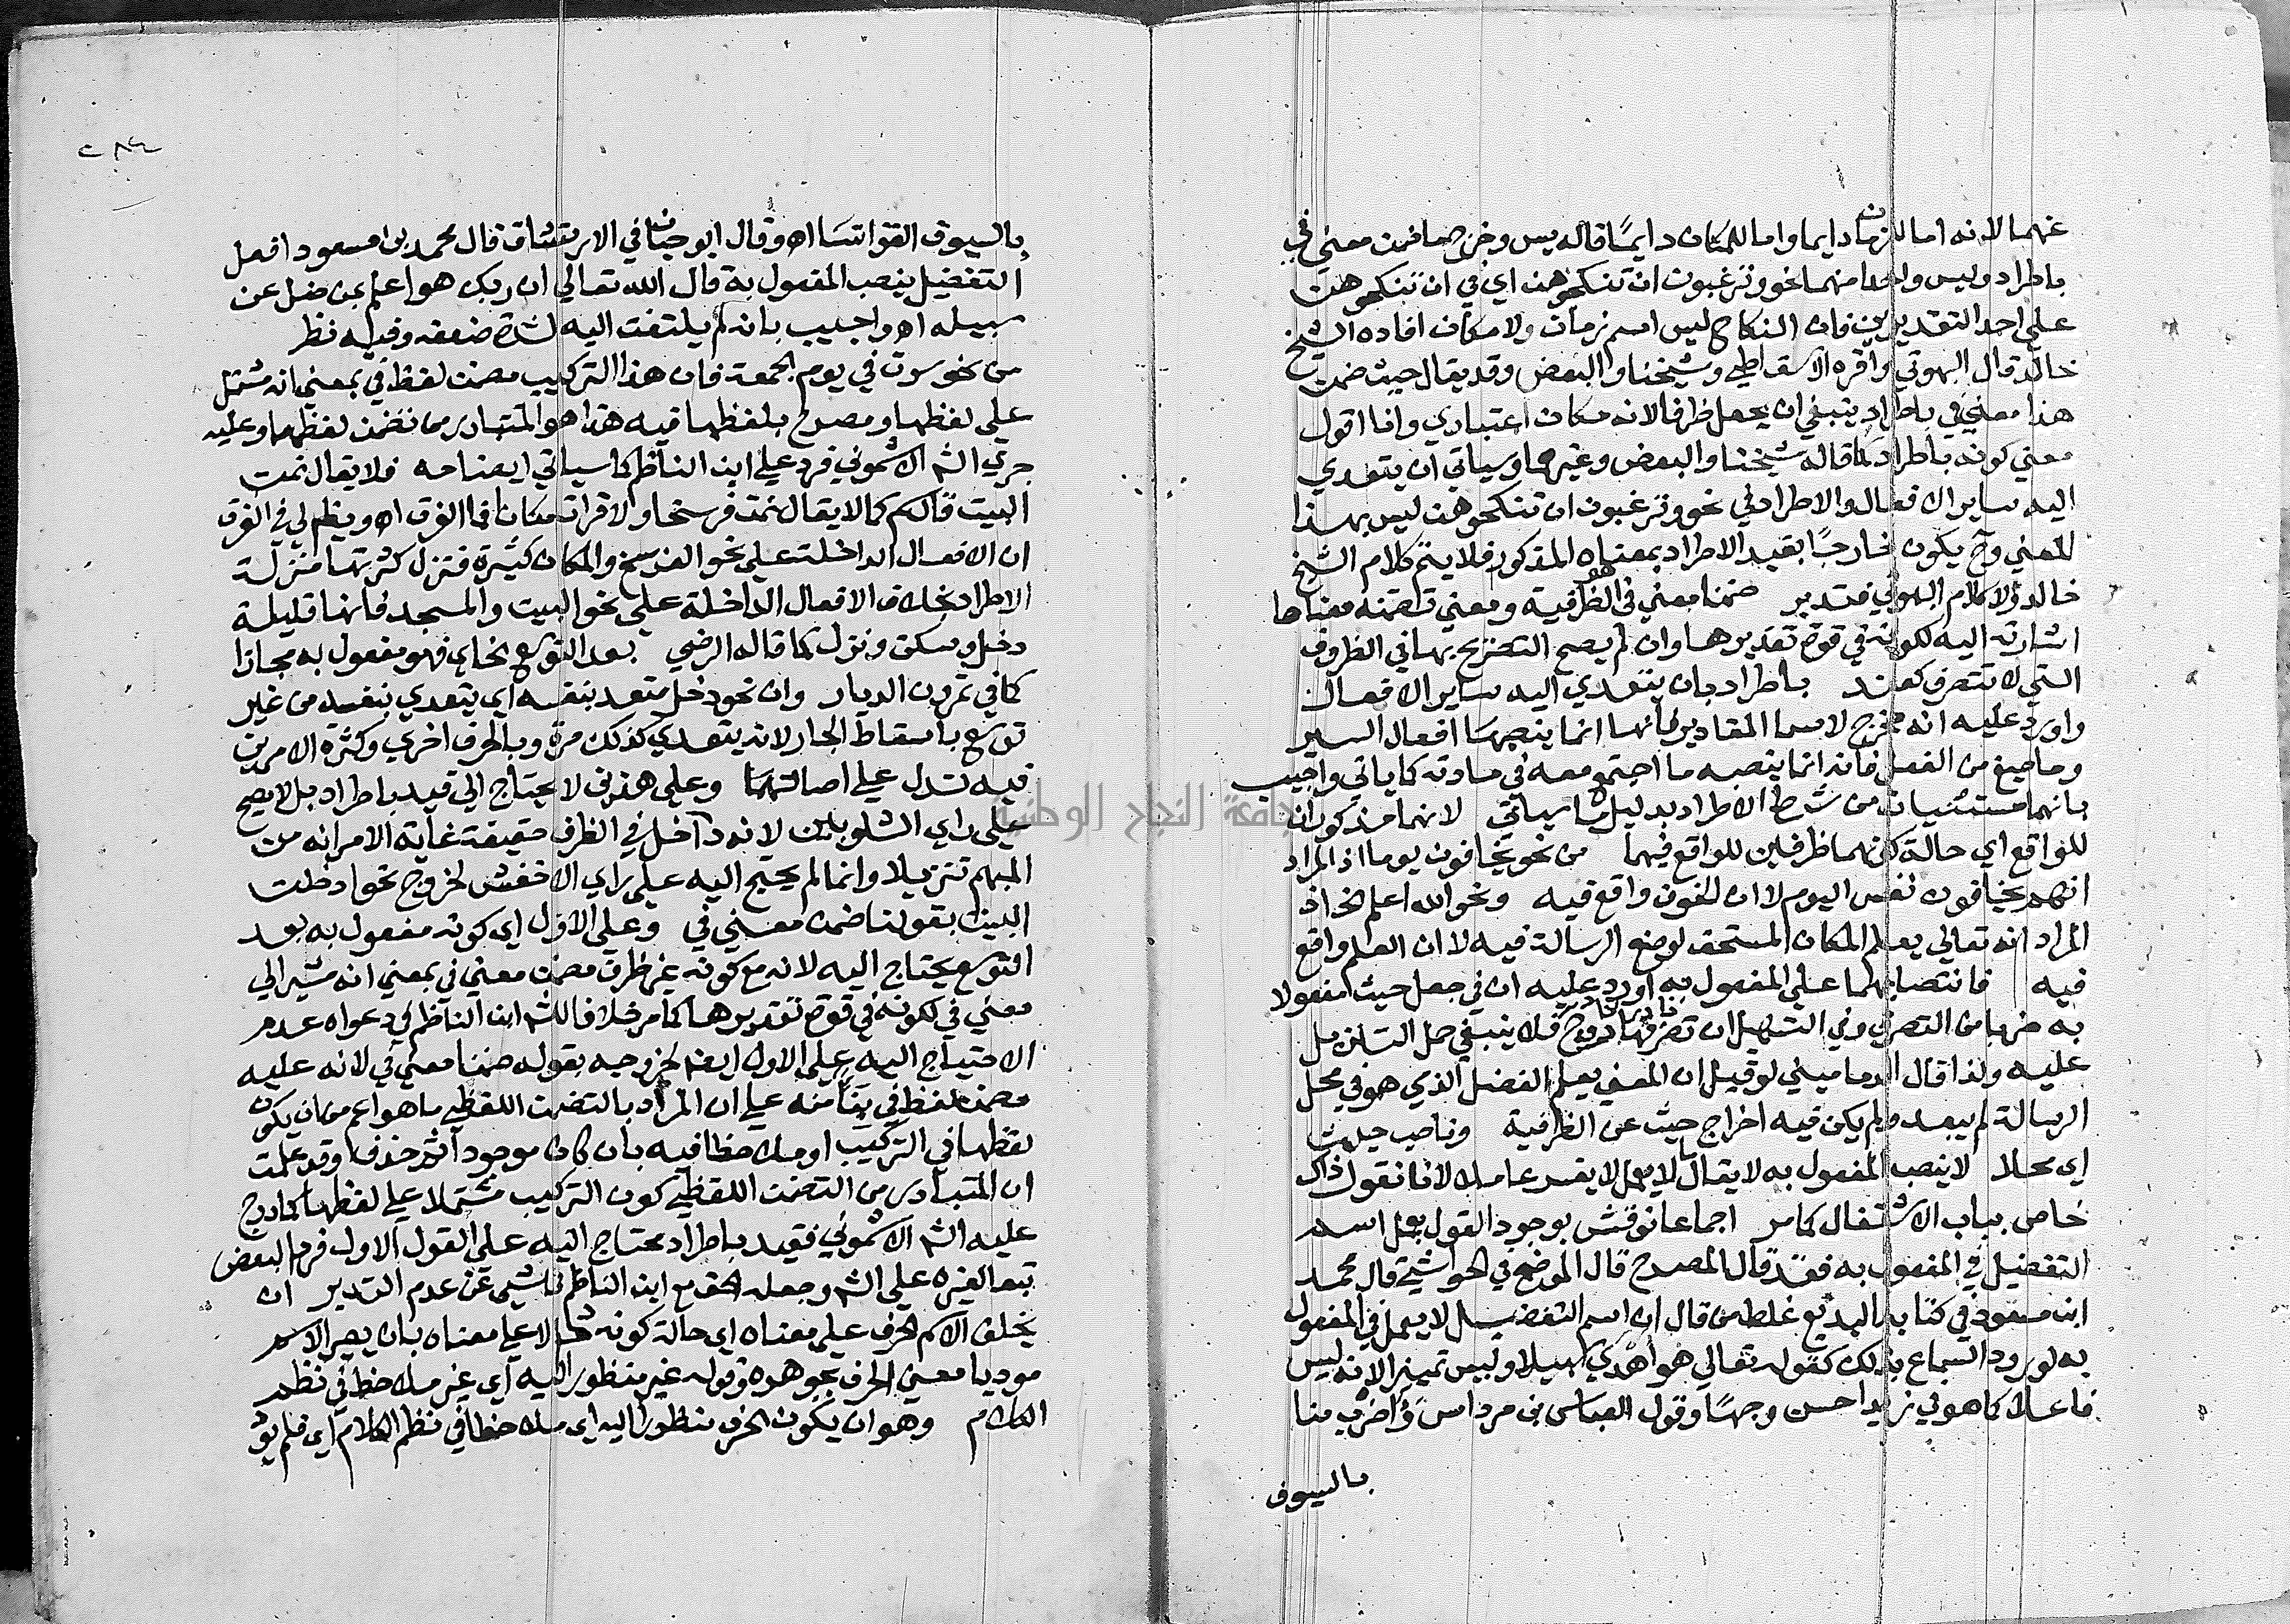 عنهما لانه اما للزمان دايما واما للمكان دايمًا قاله يس وخرج صما ضمن معنى في
باطراد وليس واحدا منهما نحو وترغبون ان تنكحوهن اي في ان تنكحوهن
على احد التقديرين فان النكاح ليس اسم زمان ولا مكان افاده الشيخ
خالد قال البهوتي واقره الاسقاطي وشيخنا والبعض وقد يقال حيث ضمن
هذا معنى في باطراد ينبغي ان يجعل ظرفا لانه مكان اعتباري وانا اقول
معنى كونه باطراد كما قاله شيخنا والبعض وغيرهما وسياتي ان يتعدي
اليه ساير الافعال والاطراد في نحو وترغبون ان تنكحوهن ليس بهذا
المعني وح يكون خارجًا بقيد الاطراد بمعناه المذكور فلا يتم كلام الشيخ
خالد ولا كلام البهوتي فتدبر ضمنا معني في الظرفية ومعني تضمنه معناها
اشارته اليه لكونه في قوة تقديرها وان لم يصح التصريح بها في الظروف
التي لا تتصرف كعند باطراد بان يتعدي اليه ساير الافعال
واورد عليه انه مخرج لاسما المقادير لانها انما ينصبها افعال السير
وما صيغ من الفعل فانه انما ينصبه ما اجتمع معه في مادته كما ياتي واجيب
بانهما مستثنيان من شرط الاطراد بدليل ما سياتي لانهما مذكوران
للواقع اي حالة كونهما ظرفين للواقع فيهما من نحو يخافون يوما اذ المراد
انهم يخافون نفس اليوم لا ان الخوف واقع فيه ونحو الله اعلم الخ اذ
المراد انه تعالي يعلم المكان المستحق لوضع الرسالة فيه لا ان العلم واقع
فيه فانتصابهما على المفعول به اورد عليه ان في جعل حيث مفعولا
به ضربا من التصرف وفي التسهيل ان تصرفها نادر وح فلا ينبغي حمل التنزيل
عليه ولذا قال الدماميني لو قيل ان المعني يعلم الفضل الذي هو في محل
الرسالة لم يبعد ولم يكن فيه اخراج حيث عن الظرفية وناصب حيث
اي محلا لا ينصب المفعول به لا يقال ما لا يعمل لا يفسر عاملا لانا نقول ذاك
خاص بباب الاشتغال كما مر اجماعا نوقش بوجود القول بعمل اسم
التفضيل في المفعول به فقد قال المصرح قال الموضح في الحواشي قال محمد
ابن مسعود في كتابه البديع غلط من قال ان اسم التفضيل لا يعمل في المفعول
به لورود السماع بذلك كقوله تعالي هو اهدي سبيلا وليس تمييزا لانه ليس
فاعلا كما هو في زيد احسن وجهًا وقول العباس بن مرداس واضرب منا
بالسيوف
بالسيوف القوانسا اه وقال ابو حيان في الارتشاف قال محمد بن مسعود افعل
التفضيل ينصب المفعول به قال الله تعالي ان ربك هو اعلم بمن ضل عن
سبيله اه واجيب بانه لم يلتفت اليه لشدة ضعفه وفيه نظر
من نحو سرت في يوم الجمعة فان هذا التركيب مضمن لفظ في بمعني انه مشتمل
على لفظها ومصرح بلفظها فيه هذا هو المتبادر من تضمن لفظها وعليه
جري الش الاشموني فرد على ابن الناظم كما سياتي ايضاحه فلا يقال نمت
البيت قالهم كما لا يقال نمت فرسخا ولا قرات مكانا فما الفرق اه ويظهر لي في الفرق
ان الافعال الداخلة على نحو الفرسخ والمكان كثيرة فتنزل كثرتها منزلة
الاطراد بخلاف الافعال الداخلة على نحو البيت والمسجد فانها قليلة
دخل وسكن ونزل كما قاله الرضي بعد التوسع الخ اي فهو مفعول به مجازا
كما في تمرون الديار وان نحو دخل متعد بنفسه اي يتعدي بنفسه من غير
توسع باسقاط الجار لانه يتعدي كذلك مرة وبالحرف اخري وكثرة الامرين
فيه تدل على اصالتهما وعلى هذين لا يحتاج الي قيد باطراد بل لا يصح
على راي الشلوبين لانه داخل في الظرف حقيقة غاية الامر انه من
المبهم تنزيلا وانما لم يحتج اليه على راي الاخفش لخروج نحو دخلت
البيت بقولنا ضمن معني في وعلى الاول اي كونه مفعول به بعد
التوسع يحتاج اليه لانه مع كونه غير ظرف مضمن معني في بمعني انه مشير الي
معني في لكونه في قوة تقديرها كما مر خلافا للش ابن الناظم في دعواه عدم
الاحتياج اليه على الاول ايضا لخروجه بقوله ضمنا معني في لانه عليه
مضمن لفظ في بناً منه على ان المراد بالتضمن اللفظي ما هو اعم من ان يكون
لفظها في التركيب او ملاحظا فيه بان كان موجودا ثم حذف وقد علمت
ان المتبادر من التضمن اللفظي كون التركيب مشتملا على لفظها كما درج
عليه الش الاشموني فقيد باطراد محتاج اليه على القول الاول فرد البعض
تبعا لغيره على الش وجعله الحق مع ابن الناظم ناشي عن عدم التدبر ان
يخلف الاسم الحرف على معناه اي حالة كونه دالا على معناه بان يصير الاسم
موديا معني الحرف بجوهره وقوله غير منظور اليه اي غير ملاحظ في نظم
الكلام وهو ان يكون الحرف منظورا اليه اي ملاحظا في نظم الكلام اي فلم يؤ
جامعة النجاح الوطنية